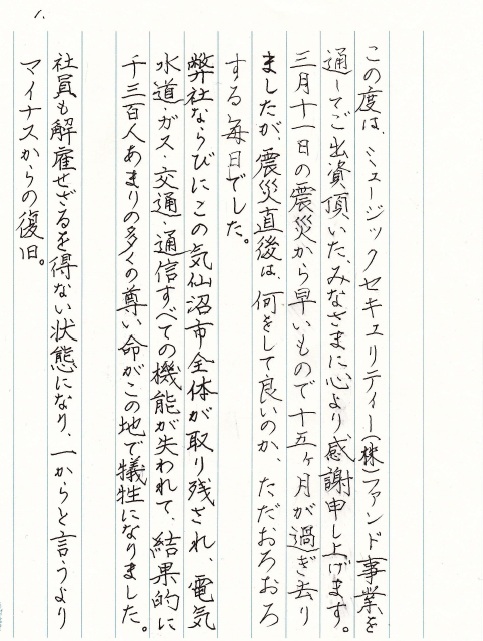 1.
この度は、ミュージックセキュリティー(株)ファンド事業を
通してご出資頂いた、みなさまに心より感謝申し上げます。
三月十一日の震災から早いもので十五ヶ月が過ぎ去り
ましたが、震災直後は、何をして良いのか、ただおろおろ
する毎日でした。
弊社ならびにこの気仙沼市全体が取り残され、電気
水道・ガス・交通・通信すべての機能が失われて、結果的に
千三百人あまりの多くの尊い命がこの地で犠牲になりました。
社員も解雇せざるを得ない状態になり、一からと言うより
マイナスからの復旧。